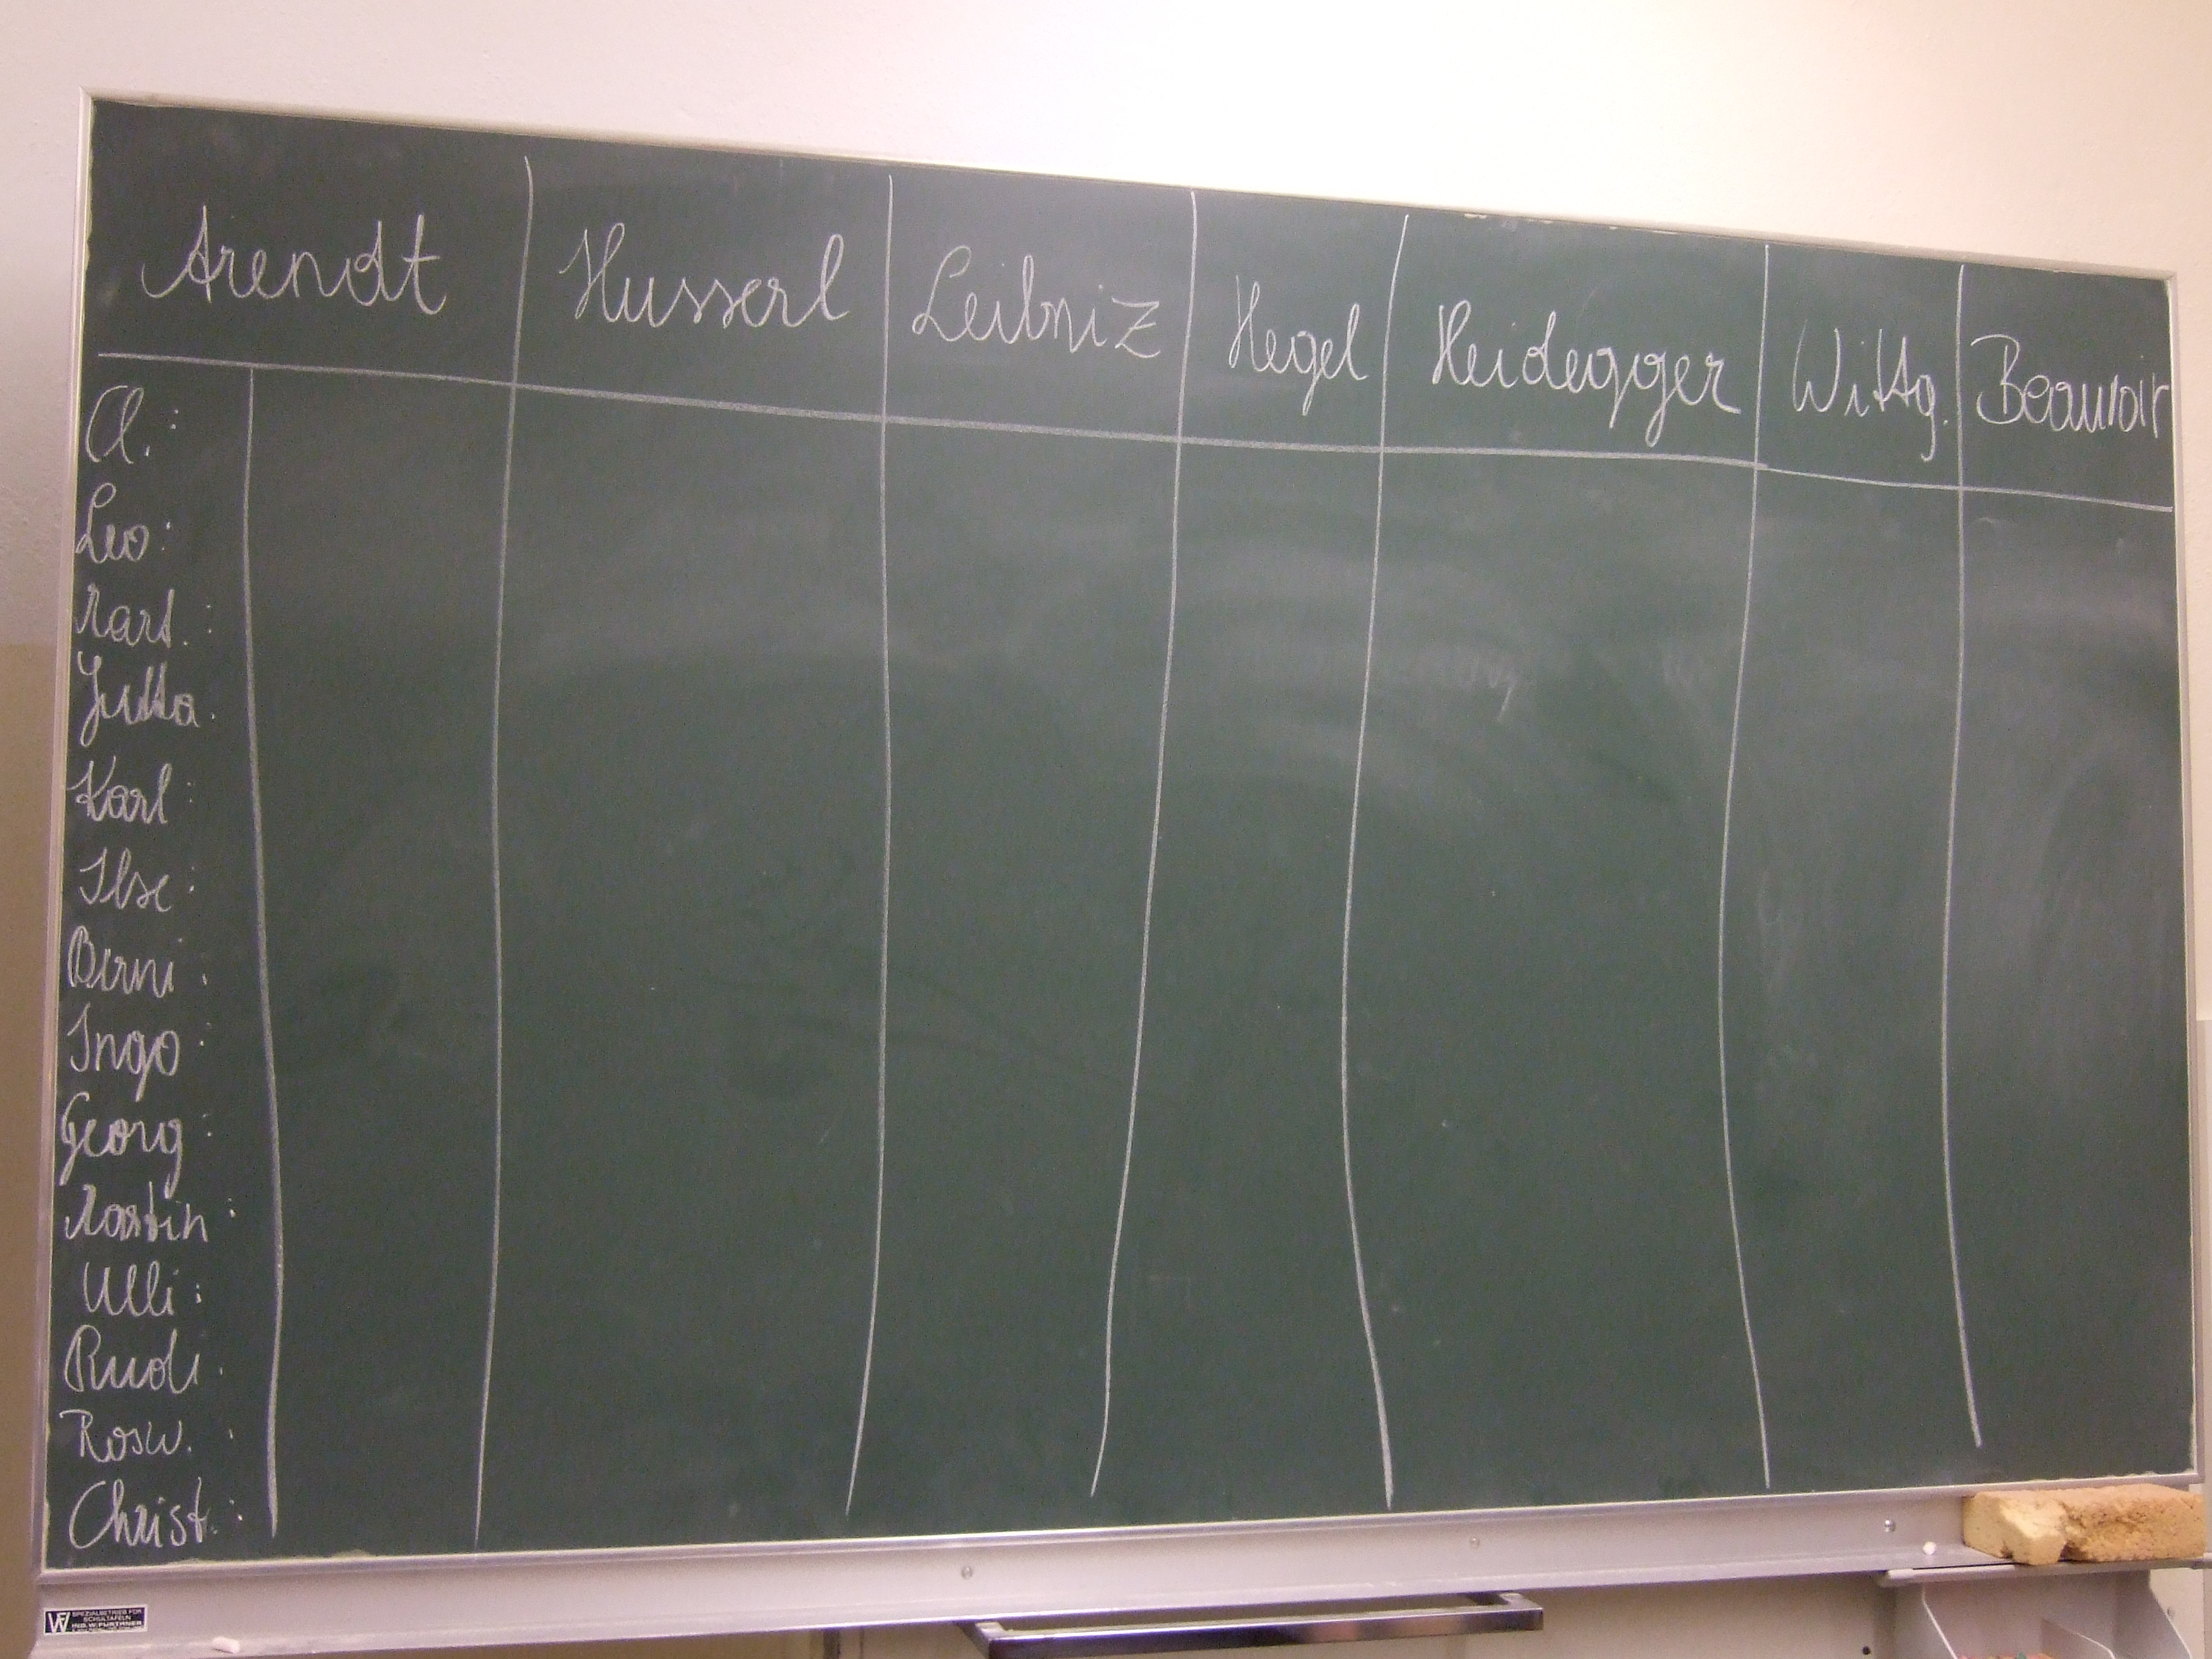 Arendt Husserl Leibniz Hegel Heidegger Wittg. Beauvoir
Cl.:
Leo:
Mart.:
Jutta:
Karl:
Ilse:
Berni:
Ingo:
Georg:
Martin:
Ulli:
Rudi:
Rosw.:
Christ.:
SPEZIALBETRIEB FÜR
SCHULTAFELN
ING. W. FURTHNER